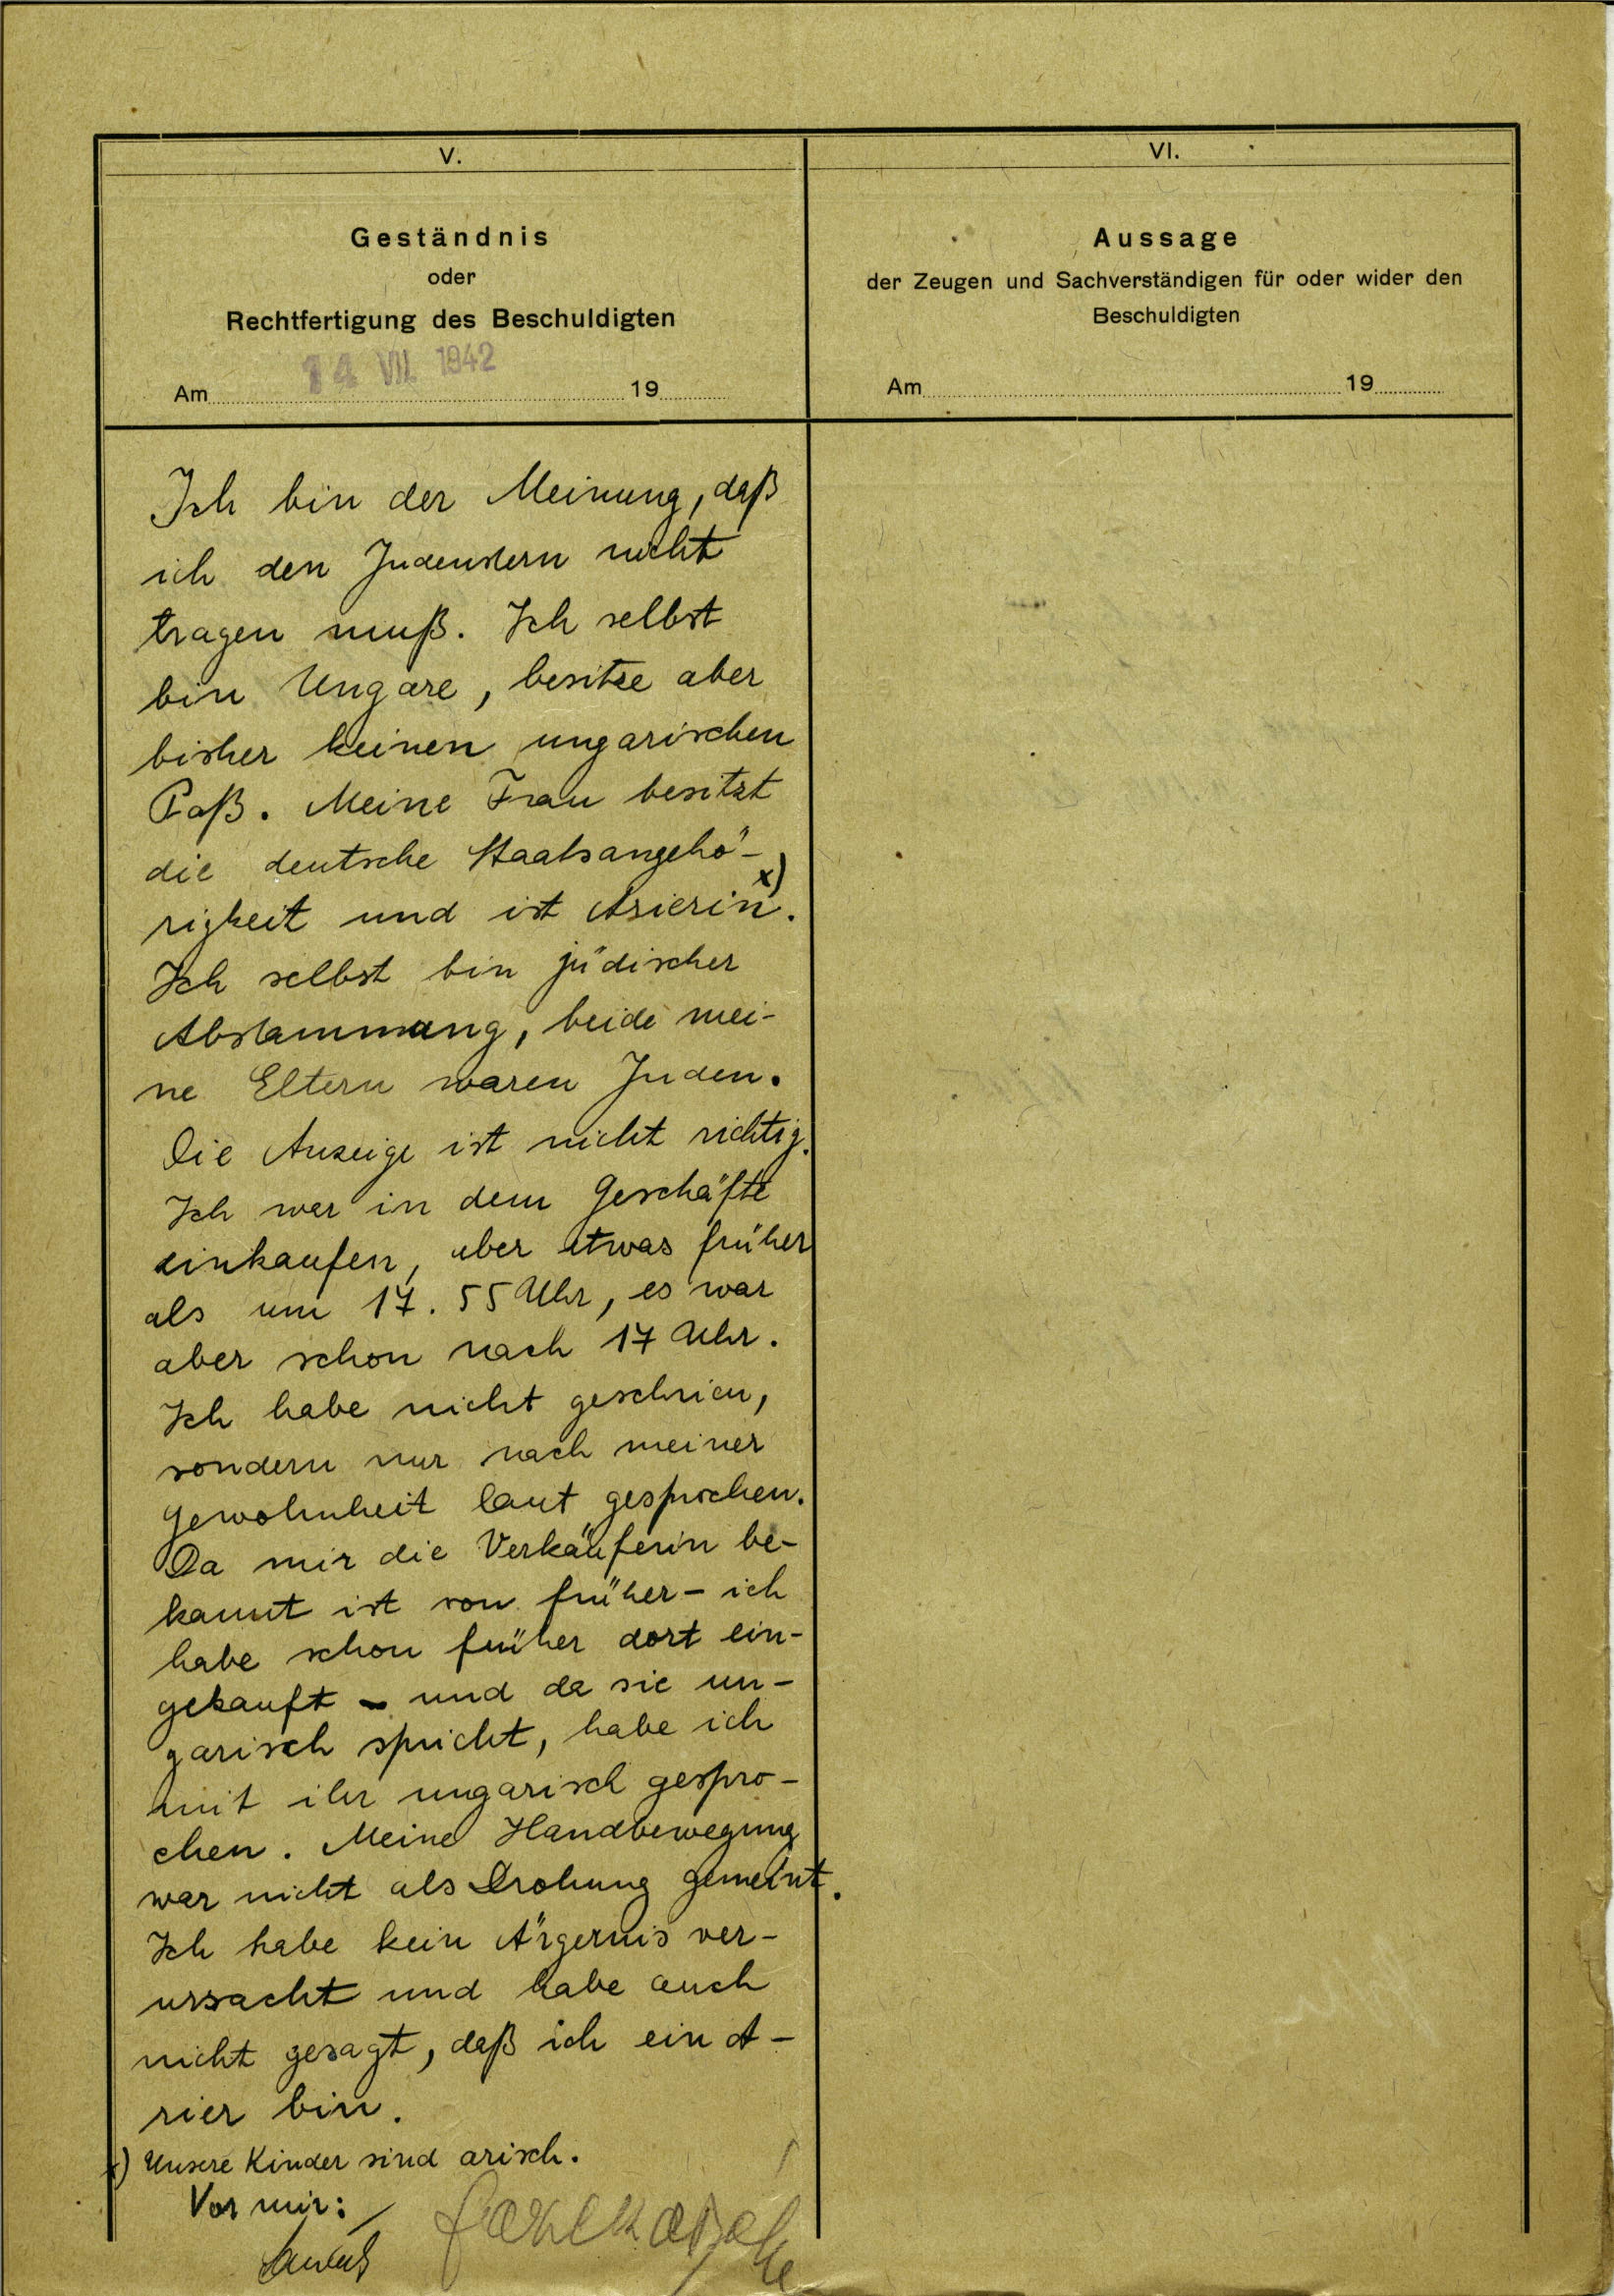 V.
Geständnis
oder
Rechtfertigung des Beschuldigten
14 VII. 1942
Am 19
VI.
Aussage
der Zeugen und Sachverständigen für oder wider den
Beschuldigten
Am 19
Ich bin der Meinung, daß
ich den Judenstern nicht
tragen muß. Ich selbst
bin Ungare, besitze aber
bisher keinen ungarischen
Paß. Meine Frau besitzt
die deutsche Staatsangehö-
rigkeit und ist Arierin x).
Ich selbst bin jüdischer
Abstammung, beide mei-
ne Eltern waren Juden.
Die Anzeige ist nicht richtig.
Ich war in dem Geschäfte
einkaufen, aber etwas früher
als um 17.55 Uhr, es war
aber schon nach 17 Uhr.
Ich habe nicht geschrien,
sondern nur nach meiner
Gewohnheit laut gesprochen.
Da mir die Verkäuferin be-
kannt ist von früher - ich
habe schon früher dort ein-
gekauft - und da sie un-
garisch spricht, habe ich
mit ihr ungarisch gespro-
chen. Meine Handbewegung
war nicht als Drohung gemeint.
Ich habe kein Ärgernis ver-
ursacht und habe auch
nicht gesagt, daß ich ein A-
rier bin.
x) Unsere Kinder sind arisch.
Vor mir: